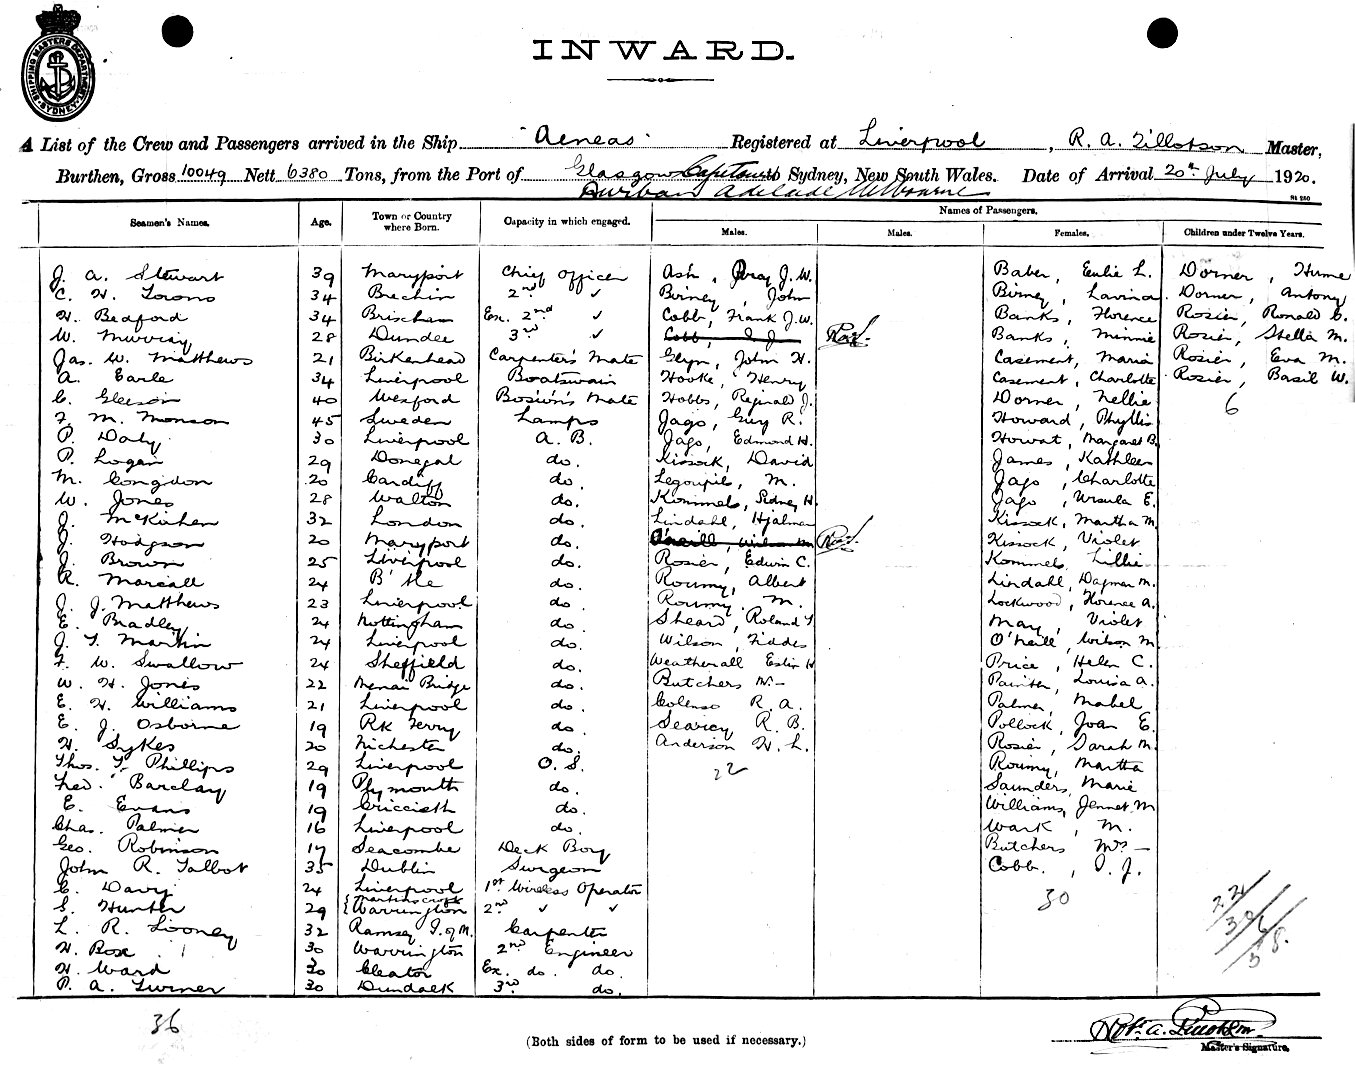 SHIPPING MASTERS DEPARTMENT SYDNEY
INWARD.
A List of the Crew and Passengers arrived in the Ship "Aeneas" Registered at Liverpool, R. A. Tillotson Master,
Burthen, Gross 10049 Nett 6380 Tons, from the Port of Glasgow Capetown Sydney, New South Wales. Date of Arrival 20th July 1920.
Durban Adelaide Melbourne
Seamen's Names. Age. Town or Country where Born. Capacity in which engaged. Names of Passengers.
Males. Males. Females. Children under Twelve Years.
J. A. Stewart 39 Maryport Chief Officer Ash, J. W. Baber, Eulie L. Dorner, Hume
C. H. Torons 34 Brechin 2nd ✓ Birney, John Birney, Lavina Dorner, Antony
H. Bedford 34 Brixham Ex. 2nd ✓ Cobb, Frank J. W. Banks, Florence Rosier, Ronald C.
W. Murray 28 Dundee 3rd ✓ Cobb, I J Banks, Minnie Rosier, Stella M.
Jas. W. Matthews 21 Birkenhead Carpenter's Mate Glyn, John H. Casement, Maria Rosier, Eva M.
A. Earle 34 Liverpool Boatswain Hooke, Henry Casement, Charlotte Rosier, Basil W.
C. Gleeson 40 Wexford Bosun's Mate Hobbs, Reginald J. Dorner, Nellie 6
F. M. Monson 45 Sweden Lamps Jago, Guy R. Howard, Phyllis
P. Daly 30 Liverpool A. B. Jago, Edmond H. Howat, Margaret B.
P. Logan 29 Donegal do. Kissock, David James, Kathleen
M. Congdon 20 Cardiff do. Legoupil, M. Jago, Charlotte
W. Jones 28 Walton do. Kommels, Sidney H. Jago, Ursula E.
J. McKichen 32 London do. Lindahl, Hjalmar Kissock, Martha M.
J. Hodgson 20 Maryport do. O'Neill, Wilson M. Kissock, Violet
J. Brown 25 Liverpool do. Rosier, Edwin C. Kommels, Lillie
R. Marcall 24 B'tle do. Roumy, Albert Lindahl, Dagmar M.
J. J. Matthews 23 Liverpool do. Roumy, M. Lockwood, Florence A.
E. Bradley 24 Nottingham do. Sheard, Roland T May, Violet
J. T. Martin 24 Liverpool do. Wilson, Fiddes O'Neill, Wilson M
F. W. Swallow 24 Sheffield do. Weatherall Eslin H Price, Helen C.
W. H. Jones 22 Menai Bridge do. Butchers Mr. — Painter, Louisa A.
E. H. Williams 21 Liverpool do. Colenso R. A. Palmer, Mabel
E. J. Osborne 19 Rk Ferry do. Searcy R. B. Pollock, Joan E.
H. Sykes 20 Chichester do. Anderson H. L. Rosier, Sarah M.
Thos. F. Phillips 29 Liverpool O. S. 22 Roumy, Martha
Fred. Barclay 19 Plymouth do. Saunders, Marie
E. Evans 19 Criccieth do. Williams, Jennet M
Chas. Palmer 16 Liverpool do. Wark, M.
Geo. Robinson 17 Seacombe Deck Boy Butchers Mrs —
John R. Talbot 35 Dublin Surgeon Cobb, I. J.
C. Davy 24 Liverpool 1st Wireless Operator 30
S. Hunter 29 Warrington 2nd ✓ ✓ 22/30/6/58.
L. R. Looney 32 Ramsey I. of M. Carpenter
H. Box 30 Warrington 2nd Engineer
H. Ward 30 Cleator Ex. do. do.
P. A. Turner 30 Dundalk 3rd do.
36
(Both sides of form to be used if necessary.)
Robt. A. Tillotson
Master's Signature.